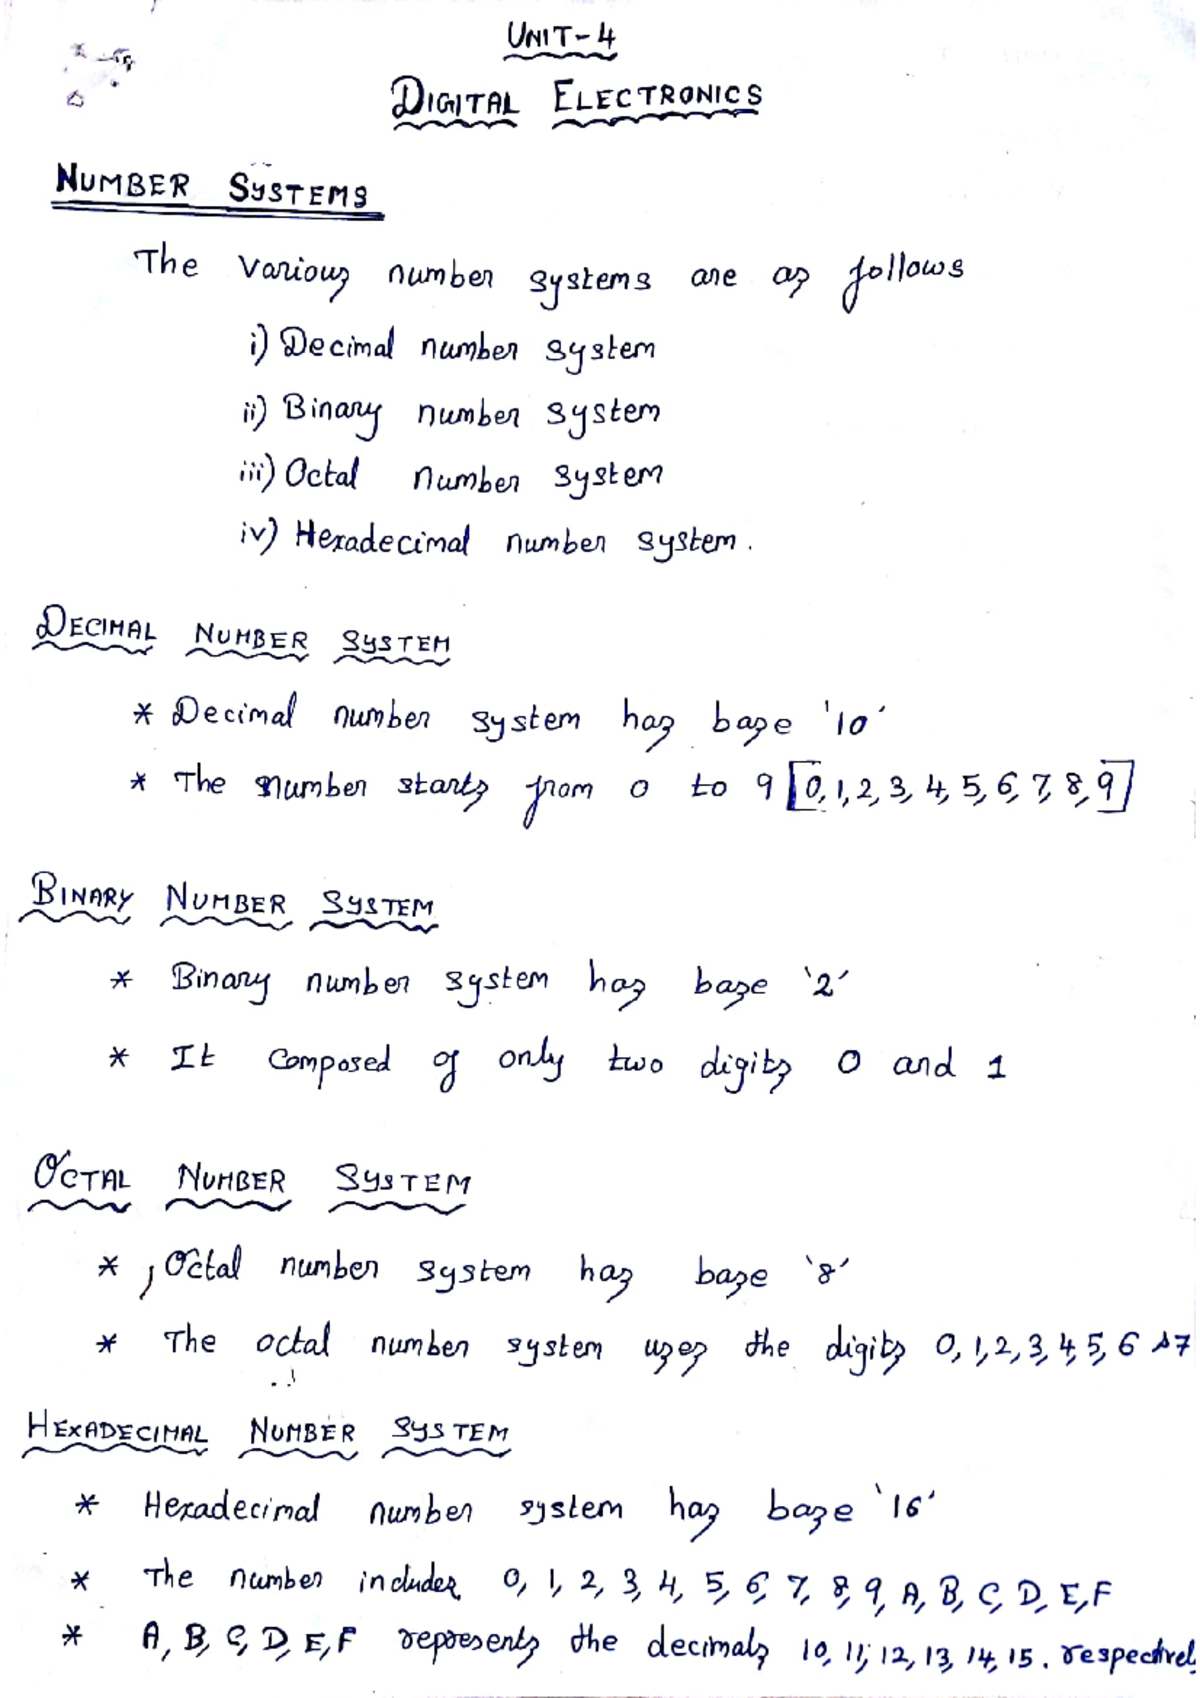 UNIT-4
DIGITAL ELECTRONICS
NUMBER SYSTEMS
The various number systems are as follows
i) Decimal number system
ii) Binary number system
iii) Octal number system
iv) Hexadecimal number system.
DECIMAL NUMBER SYSTEM
* Decimal number system has base '10'
* The number starts from 0 to 9 [0,1,2,3,4,5,6,7,8,9]
BINARY NUMBER SYSTEM
* Binary number system has base '2'
* It composed of only two digits 0 and 1
OCTAL NUMBER SYSTEM
* Octal number system has base '8'
* The octal number system uses the digits 0,1,2,3,4,5,6 & 7
HEXADECIMAL NUMBER SYSTEM
* Hexadecimal number system has base '16'
* The number includes 0, 1, 2, 3, 4, 5, 6, 7, 8, 9, A, B, C, D, E, F
* A, B, C, D, E, F represents the decimals 10, 11, 12, 13, 14, 15. respectivel